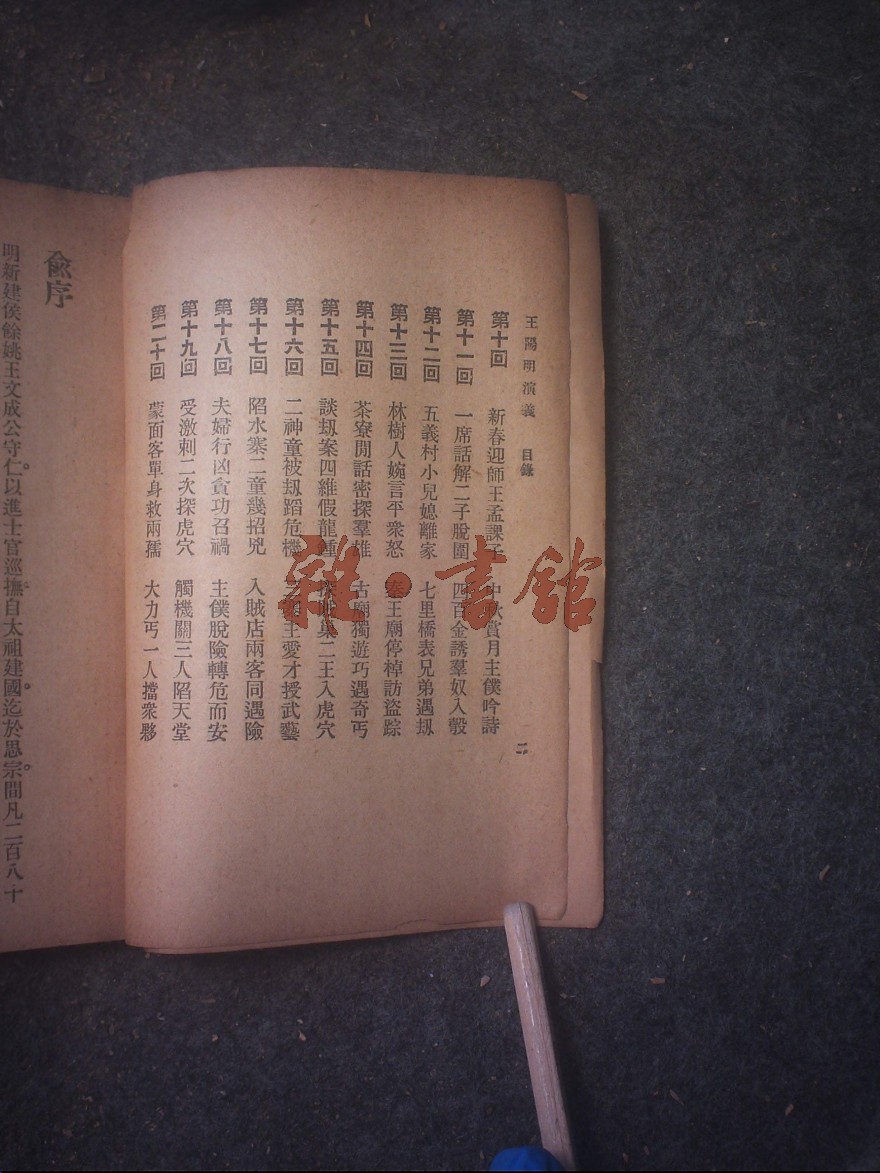 王陽明演義　目錄　二
第十回　新春迎師王孟課子　中秋賞月主僕吟詩
第十一回　一席話解二子脫圍　四百金誘羣奴入彀
第十二回　五義村小兒媳離家　七里橋表兄弟遇刼
第十三回　林樹人婉言平衆怒　秦王廟停棹訪盜踪
第十四回　茶寮閒話密探羣雄　古廟獨遊巧遇奇丐
第十五回　談刼案四維假龍鍾　二王入虎穴
第十六回　二神童被刼蹈危機　主愛才授武藝
第十七回　陷水寨二童幾招兇　入賊店兩客同遇險
第十八回　夫婦行凶貪功召禍　主僕脫險轉危而安
第十九回　受激刺二次探虎穴　觸機關三人陷天堂
第二十回　蒙面客單身救兩孺　大力丐一人擋衆夥
俞序
明新建侯餘姚王文成公守仁。以進士官巡撫自太祖建國。迄於思宗。間凡二百八十
雜·書館